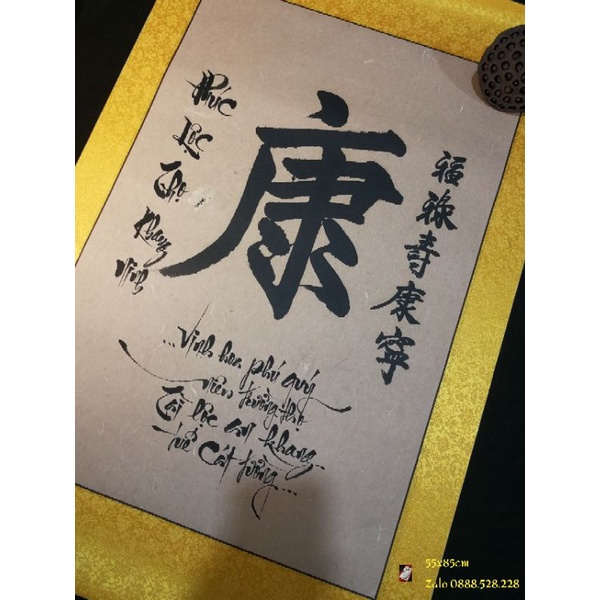 Phúc
Lộc
Thọ
Khang
Ninh
康
福祿寿康寧
...Vinh hoa phú quý
niên trường thọ
Tài lộc an khang..
tuế Cát tường...
55x85cm
Zalo 0888.528.228